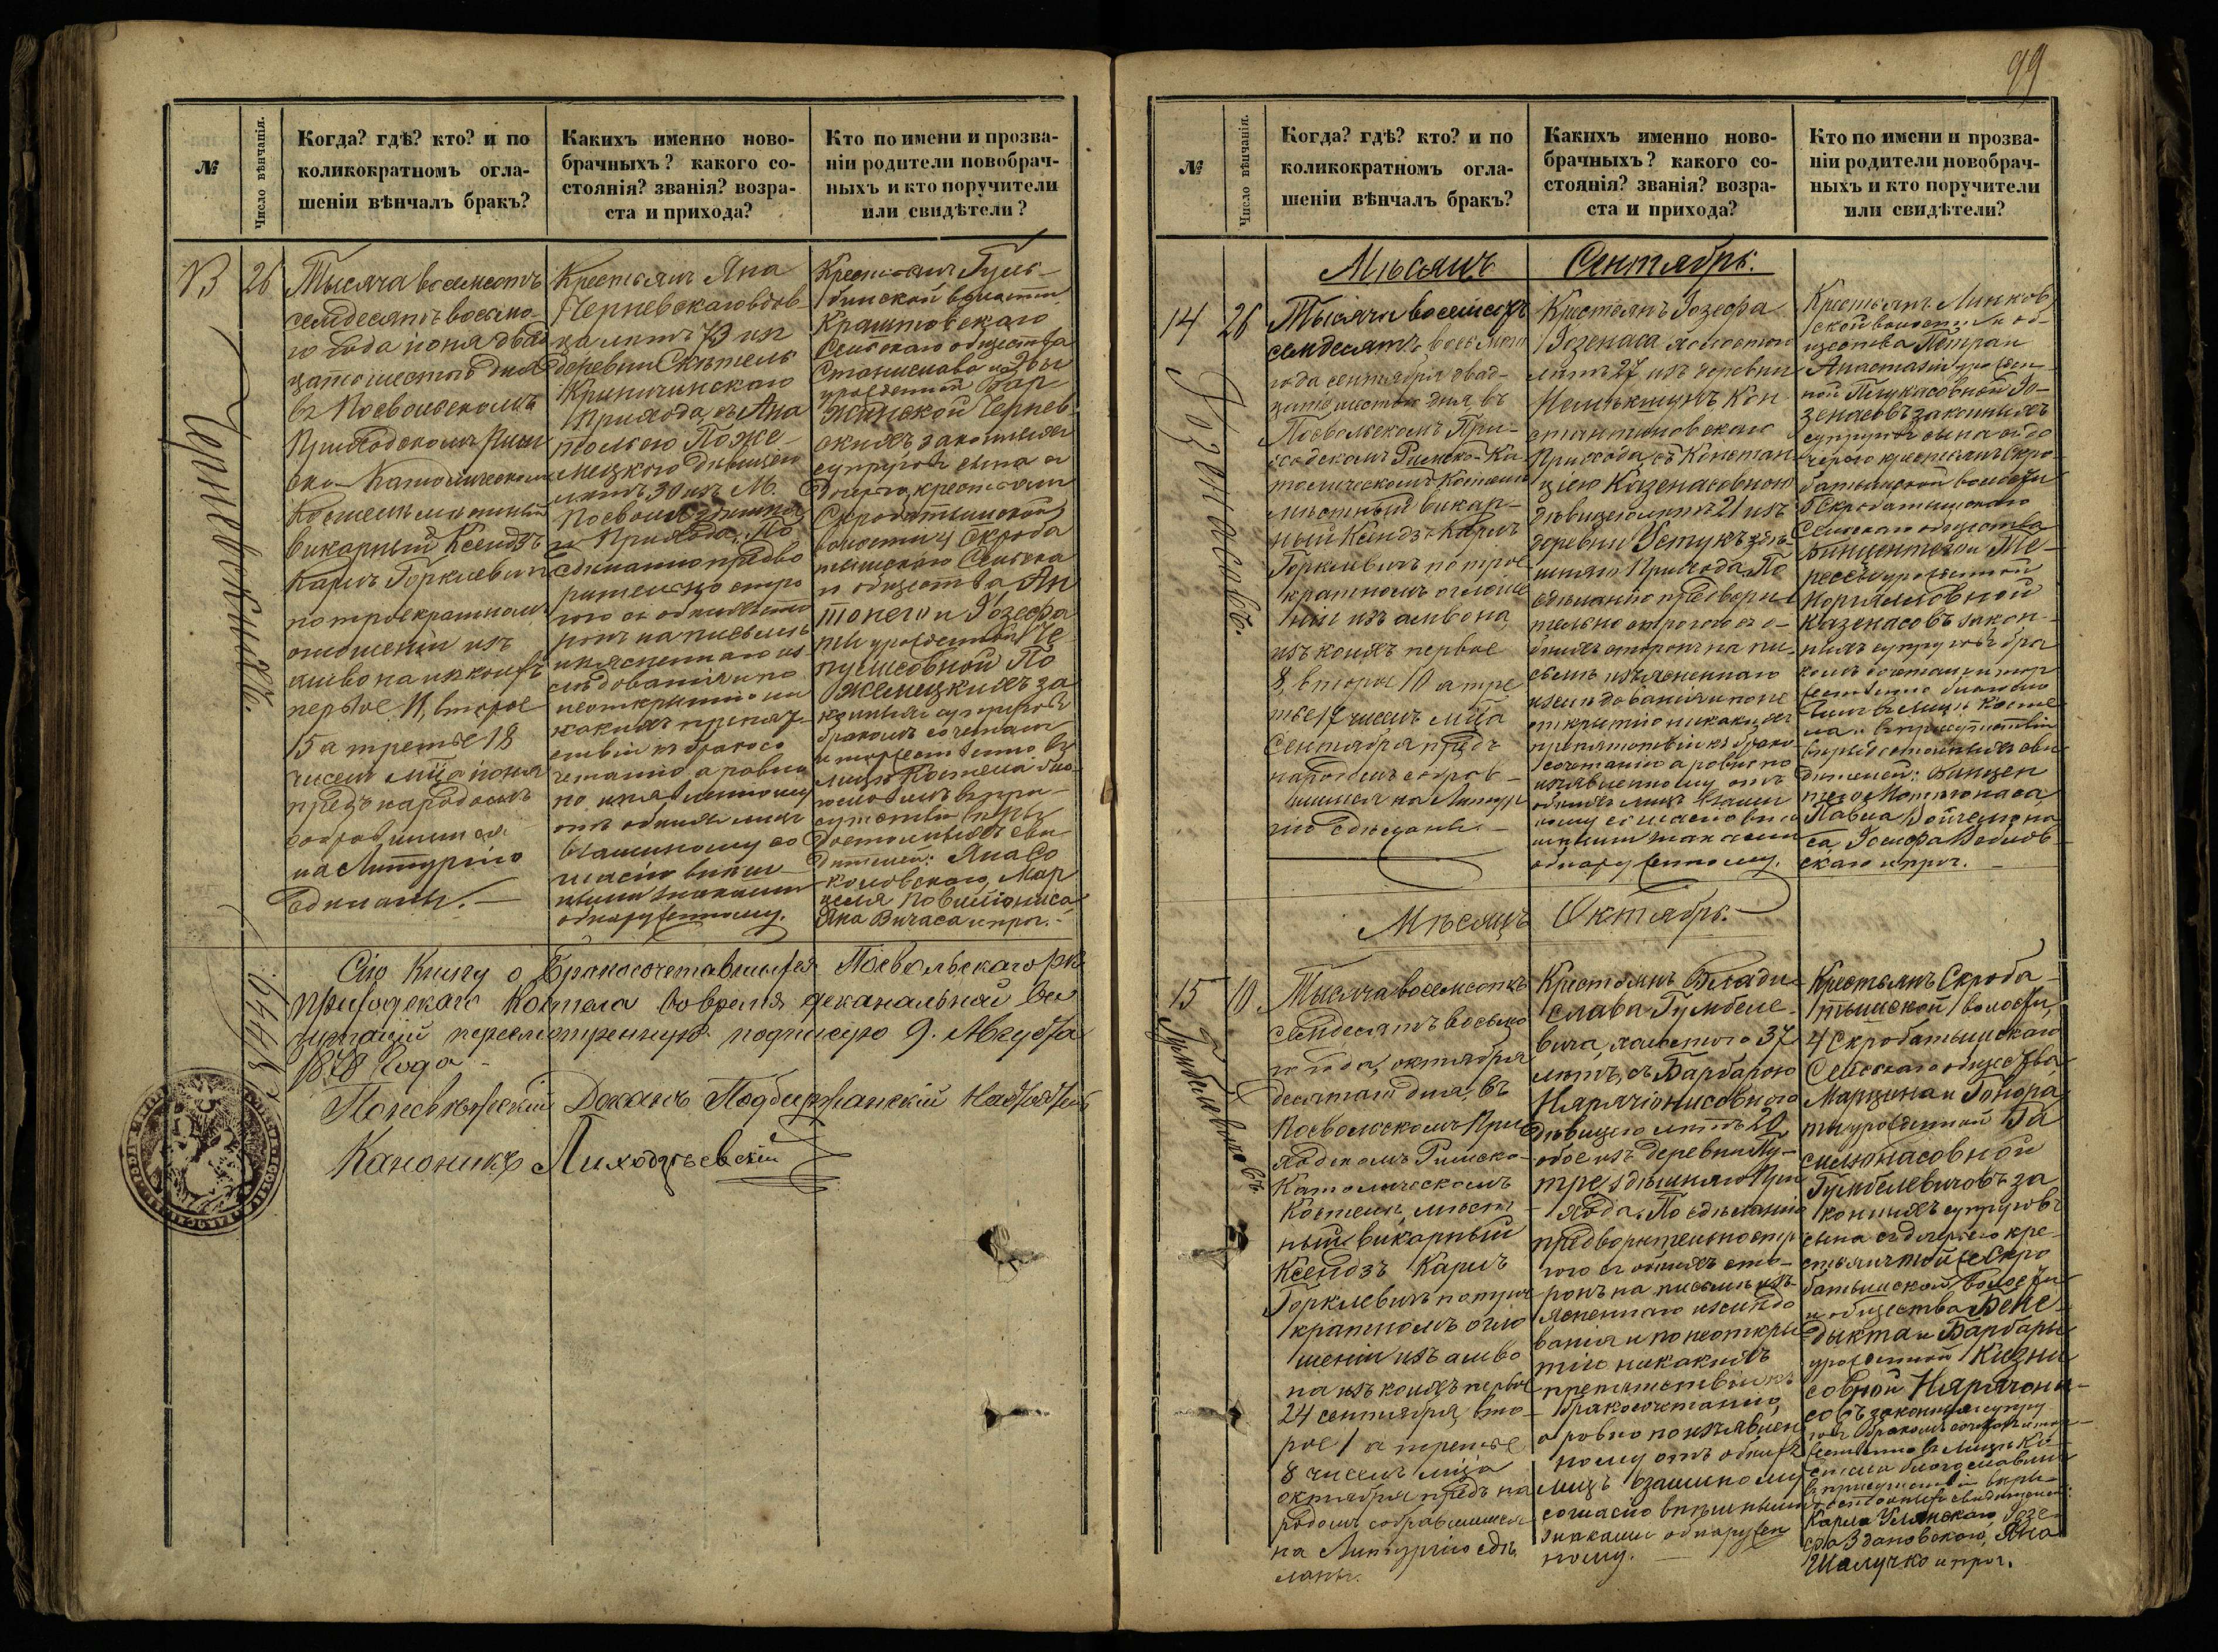 №
Число вѣнчанія.
Когда? гдѣ? кто? и по
коликократномъ огла-
шеніи вѣнчалъ бракъ?
Какихъ именно ново-
брачныхъ? какого со-
стоянія? званія? возра-
ста и прихода?
Кто по имени и прозва-
ніи родители новобрач-
ныхъ и кто поручители
или свидѣтели?
13
26
Тысяча восемсотъ
семдесятъ восьмо-
го года іюня двад
цатошестого дня
въ Посвольскомъ
Приходскомъ Рим
ско-Католическомъ
Костелѣ мѣстный
викарный Ксендзъ
Карлъ Горклевичъ
по троекратномъ
оглашеніи изъ
амвона изъ коихъ
первое 11, второе
15 а третье 18
чиселъ мѣсца іюня
предъ народомъ
собравшимся
на Литургію
сдѣланы.
Крестьянъ Яна
Черневскаго вдов
ца лѣтъ 73 изъ
деревни
Криничинскаго
Прихода, съ Ана
толіею Поже-
мецкою дѣвицею
лѣтъ 30 изъ М.
Посволя здѣшня
го Прихода. По
сдѣланію предво
рительно стро
гого съ обоихъ сто
ронъ на письмѣ
изъясненнаго из
слѣдованія и по
неоткрытію ни
какихъ препят
ствій къ бракосо
четанію, а равно
по изъявленному
отъ обоихъ лицъ
взаимному со
гласію внѣш
ными знаками
обнаруженному.
Крестьянъ
бинской волости
Сельскаго общества
Станислава и Эвы
урожденной Бар
Чернев
скихъ законныхъ
супруговъ сына съ
дочерью крестьянъ
Скробатышской
волости 4 Скроба
тышскаго Сельска
го общества Ан
тонего и Іозефа
ты урожденной
По
жемецкихъ за
конныхъ супруговъ
бракомъ сочеталъ
и торжественно въ
лицѣ Костела бла
гословилъ въ при-
сутствіи вѣры
достойныхъ сви
дѣтелей: Яна Со
коловскаго, Мар
целя Повилюниса,
Яна Вичаса и проч.
Черневскихъ.
Сію Книгу о Бракосочетавшихся Посвольскаго рк
приходскаго Костела вовремя деканальной ви
зитаціи пересмотренную подписую 9. Августа
1878 Года
Поневѣжскій Деканъ Подбиржанскій Настоятель
Каноникъ Лиходзѣевскій
99
№
Число вѣнчанія.
Когда? гдѣ? кто? и по
коликократномъ огла-
шеніи вѣнчалъ бракъ?
Какихъ именно ново-
брачныхъ? какого со-
стоянія? званія? возра-
ста и прихода?
Кто по имени и прозва-
ніи родители новобрач-
ныхъ и кто поручители
или свидѣтели?
Мѣсяцъ Сентябрь.
14
26
Розенасовъ.
Тысяча восемсотъ
семдесятъ восьмого
года сентября двад-
цатошестого дня въ
Посвольскомъ При-
ходскомъ Римско-Ка
толическомъ Костелѣ
мѣстный викар-
ный Ксендзъ Карлъ
Горклевичъ по трое
кратномъ оглаше
ніи изъ амвона
изъ коихъ первое
8, второе 10 а тре
тье 17 чиселъ мѣсца
Сентября предъ
народомъ собрав-
шимся на Литур
гію сдѣланы.
Крестьянъ Іозефа
Розенаса холостого
лѣтъ 27 изъ деревни
Кон
стантиновскаго
Прихода, съ Констан
ціею Казенасовною
дѣвицею лѣтъ 21 изъ
деревни Устукъ здѣ
шняго Прихода. По
сдѣланію предвори
тельно строгого съ о-
боихъ сторонъ на пи-
сьмѣ изъясненнаго
изслѣдованія и по не
открытію никакихъ
препятствій къ брако-
сочетанію а равно по
изъявленному отъ
обоихъ лицъ взаим
ному согласію внѣ
шними знаками
обнаруженному.
Крестьянъ Линков
ской волости и об-
щества Петра и
Анастазіи урожден-
ной Ро-
зенасовъ законныхъ
супруговъ сына съ до
черью крестьянъ Скро
батышской волости
Скробатышскаго
Сельскаго общества
Винцентего и Те-
рессы урожденной
Казенасовъ закон-
ныхъ супруговъ бра
комъ сочеталъ и тор
жественно благосло
вилъ въ лицѣ Косте
ла въ присутствіи
вѣры достойныхъ сви
дѣтелей: Винцен
тего Мотюнаса,
Павла Войчелюна
са, Іосифа
скаго и проч.
Мѣсяцъ Октябрь.
15
10
Гумбелевичовъ
Тысяча восемсотъ
семдесятъ восьмо
го года, октября
десятаго дня, въ
Посвольскомъ При
ходскомъ Римско-
Католическомъ
Костелѣ, мѣст
ный викарный
Ксендзъ Карлъ
Горклевичъ по трое
кратномъ огла
шеніи изъ амво
на изъ коихъ первое
24 сентября, вто-
рое 1 а третье
8 чиселъ мѣсца
октября предъ на
родомъ собравшимся
на Литургію сдѣ
ланы.
Крестьянъ Влади
слава Гумбеле-
вича, холостого 37
лѣтъ, съ Барбарою
Нярачіонисовною
дѣвицею лѣтъ 20
обое изъ деревни Пу-
тре здѣшняго При
хода. По сдѣланію
предворительно стро
гого съ обоихъ сто-
ронъ на письмѣ изъ-
ясненнаго изслѣдо
ванія и по неоткры
тію никакихъ
препятствій къ
бракосочетанію,
а ровно по изъявлен
ному отъ обоихъ
лицъ взаимному
согласію внѣшными
знаками обнаружен
ному.
Крестьянъ Скроба-
тышской волости,
4 Скробатышскаго
Сельскаго общества,
Марцина и Гонора
ты урожденной Га
силюнасовной
Гумбелевичовъ за
конныхъ супруговъ
сына съ дочерью кре-
стьянъ той же Скро
батышской волости
и общества Бене-
дыкта и Барбары
урожденной Кизни
совной Нярачони-
совъ законныхъ супру
говъ бракомъ сочеталъ и тор
жественно въ лицѣ Ко-
стела благословилъ
въ присутствіи вѣры
достойныхъ свидѣтелей:
Карла Улянскаго, Іозе-
фа Здановского, Яна
Шалучко и проч.